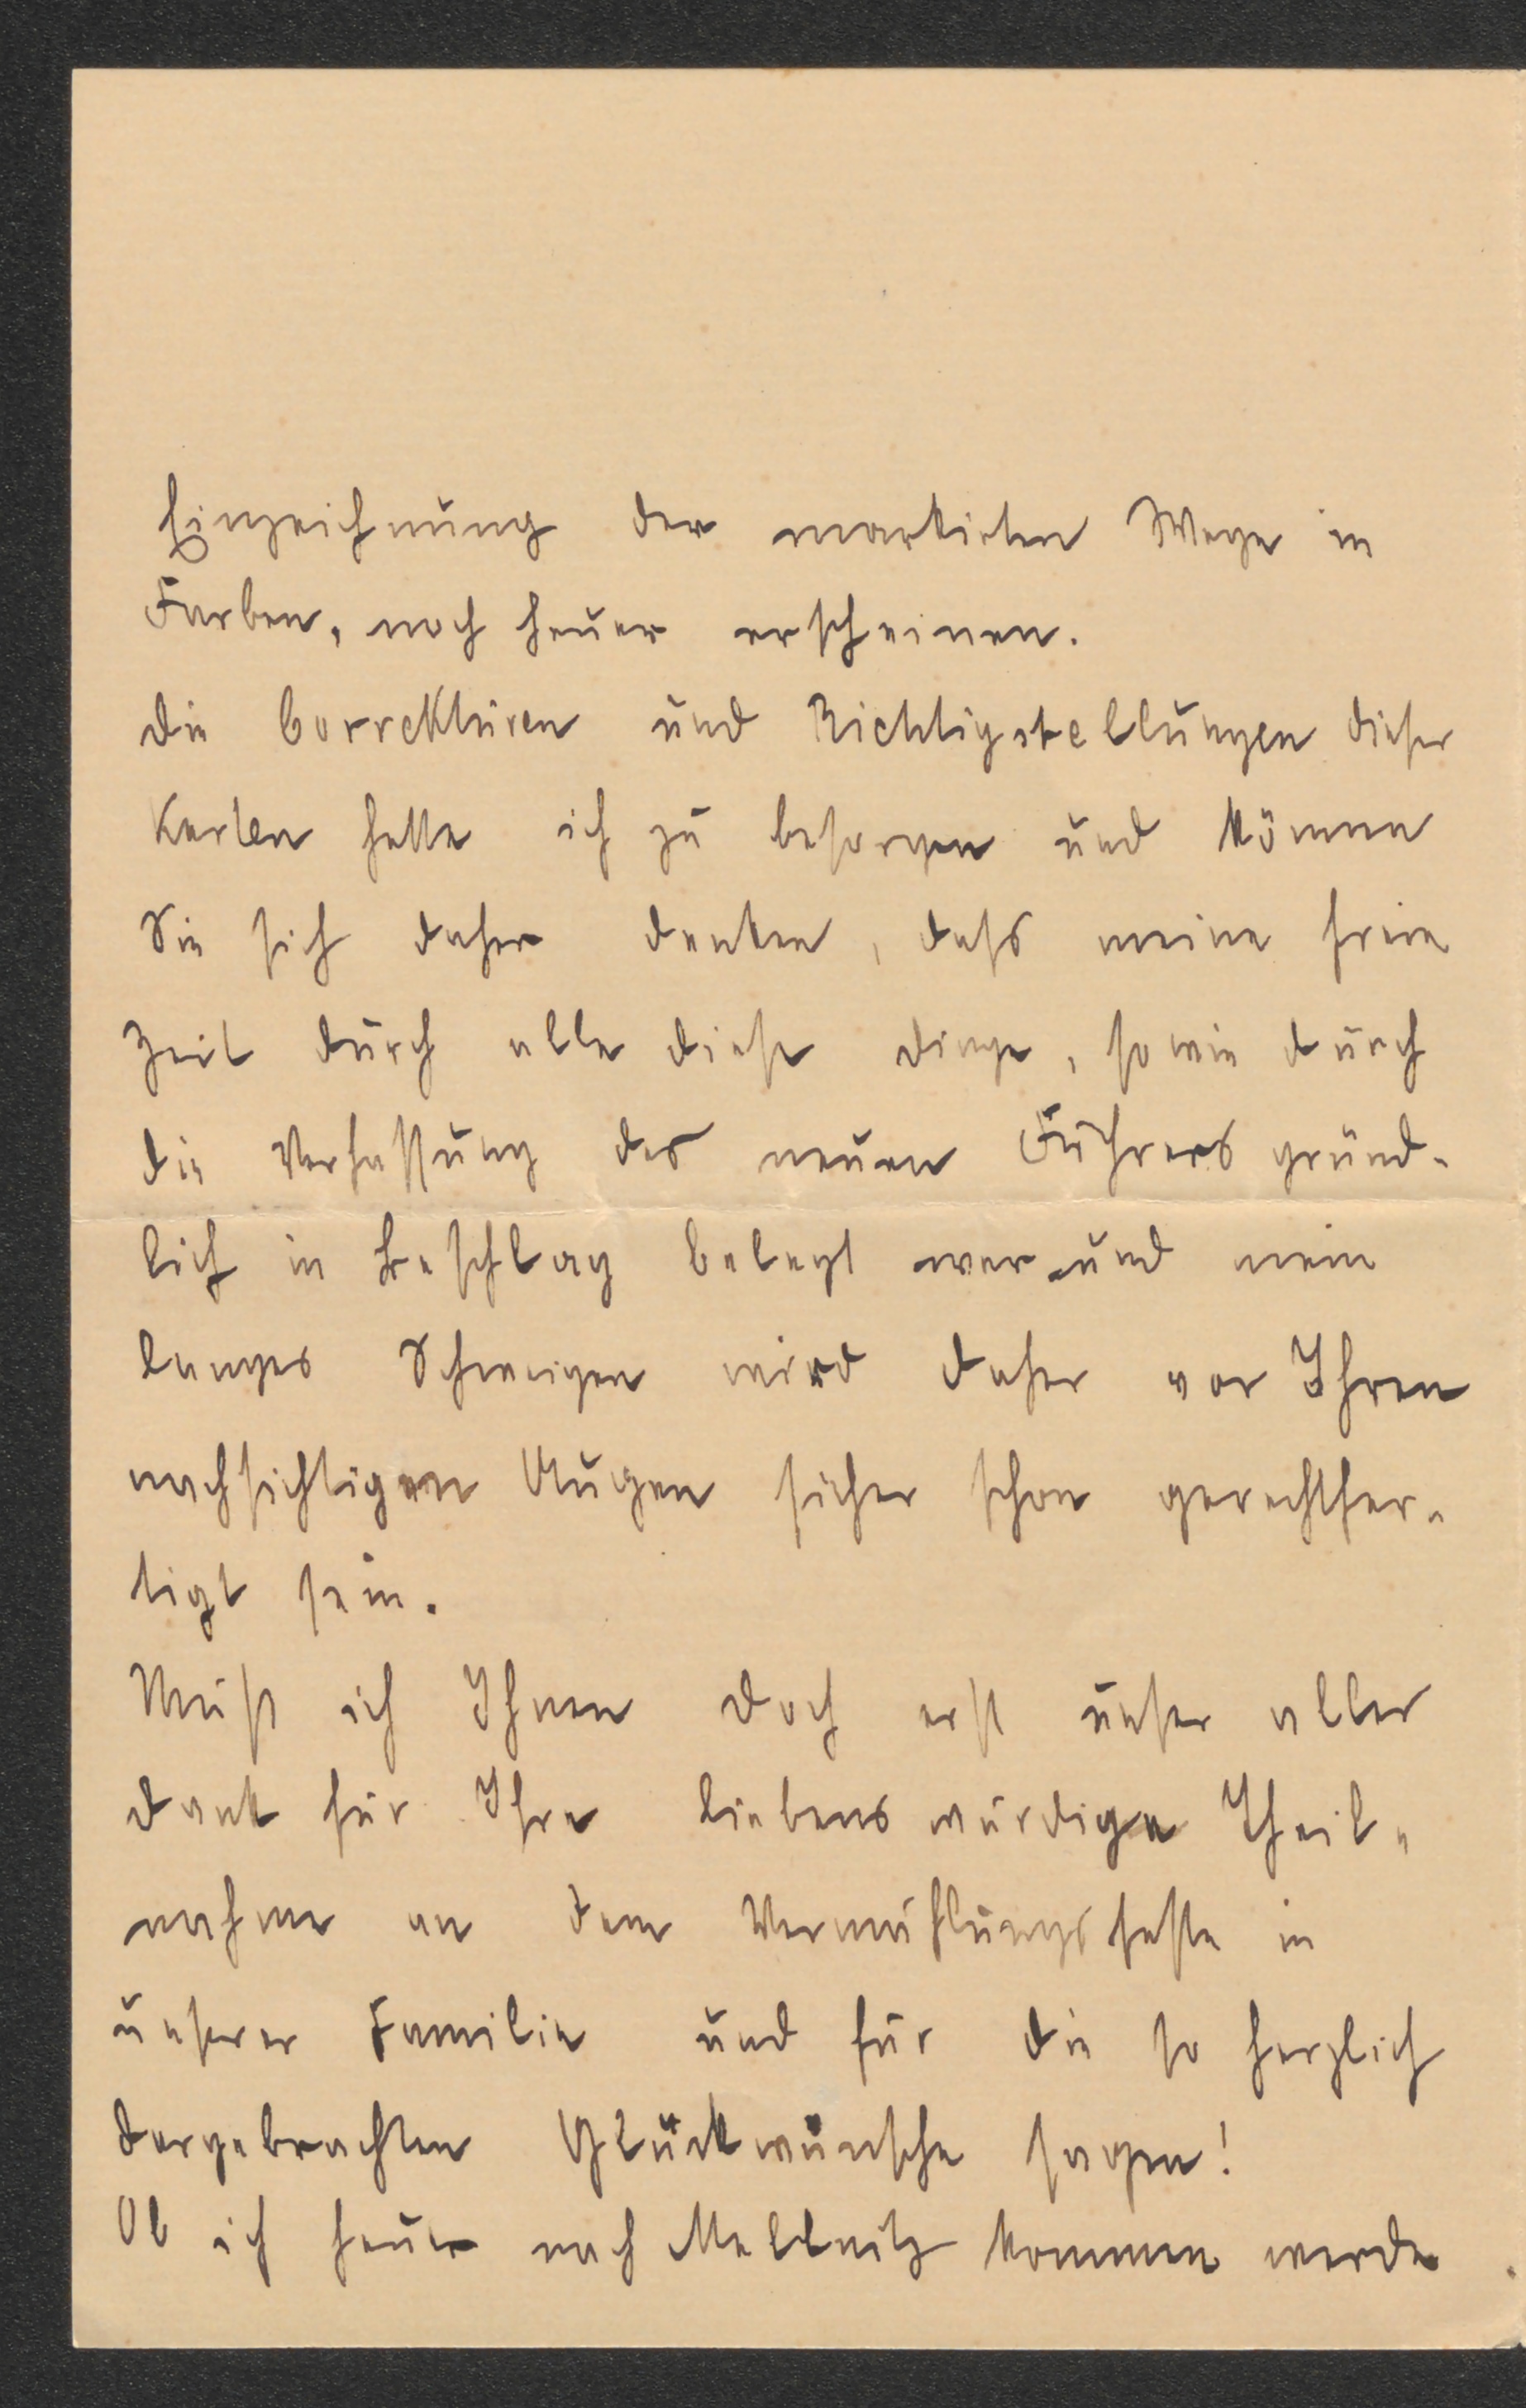 Einzeichnung der markirten Wege in
Farben, noch heuer erscheinen.
die Correkturen und Richtigstellungen dieser
Karten hatte ich zu besorgen und können
Sie sich daher denken, dass meine freie
Zeit durch alle diese dinge, sowie durch
die Verfassung des neuen Führers gründ-
lich in Beschlag belegt war und mein
langes Schweigen wird daher vor Ihren
nachsichtigen Augen sicher schon gerechtfer-
tigt sein.
Muß ich Ihnen doch erst unser aller
dank für Ihre liebenswürdige Theil-
nahme an dem Vermählungsfeste in
unserer Familie und für die so herzlich
dargebrachten Glückwünsche sagen!
Ob ich heuer nach Mallnitz kommen werde